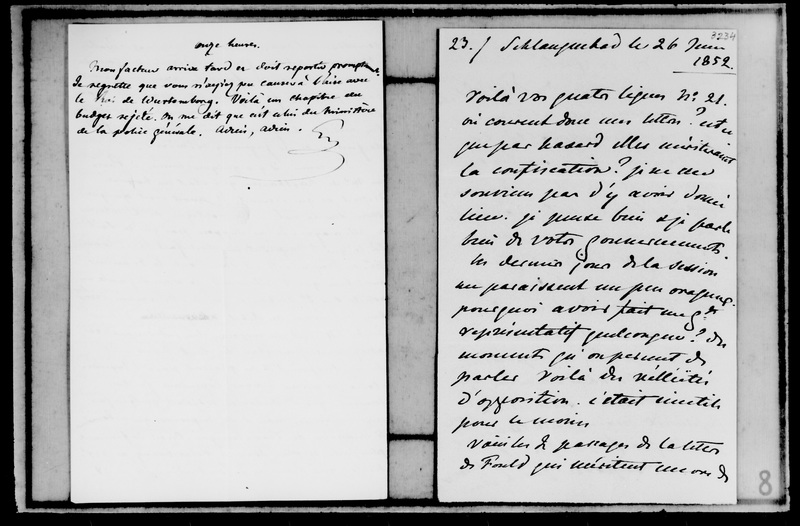 onze heures.
Mon facteur arrive tard et doit repartir promptement.
Je regrette que vous n'ayiez pu causer à l'aise avec
le Roi de Wurtemberg. Voilà un chapitre du
budget rejeté. On me dit que c'est celui du Ministère
de la police générale. Adieu, adieu.
3234
23./ Schlangenbad le 26 Juin
1852
Voilà vos quatre lignes N° 21.
où courent donc mes lettres? est ce
que par hasard elles mériteraient
la confiscation? je ne me
souviens pas d'y avoir donné
lieu. je pense bien & je parle
bien de votre gouvernement.
les derniers jours de la session
me paraissent un peu orageux.
pourquoi avoir fait un gt
représentatif quelconque? du
moment qu'on permet de
parler voilà des velléités
d'opposition. c'était inutile
pour le moins
Voici les 2 passages de la lettre
de Fould qui méritent
8